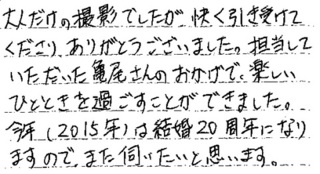 大人だけの撮影でしたが、快く引き受けて
くださり、ありがとうございました。担当して
いただいた亀尾さんのおかげで、楽しい
ひとときを過ごすことができました。
今年(2015年)は結婚20周年になり
ますので、また伺いたいと思います。